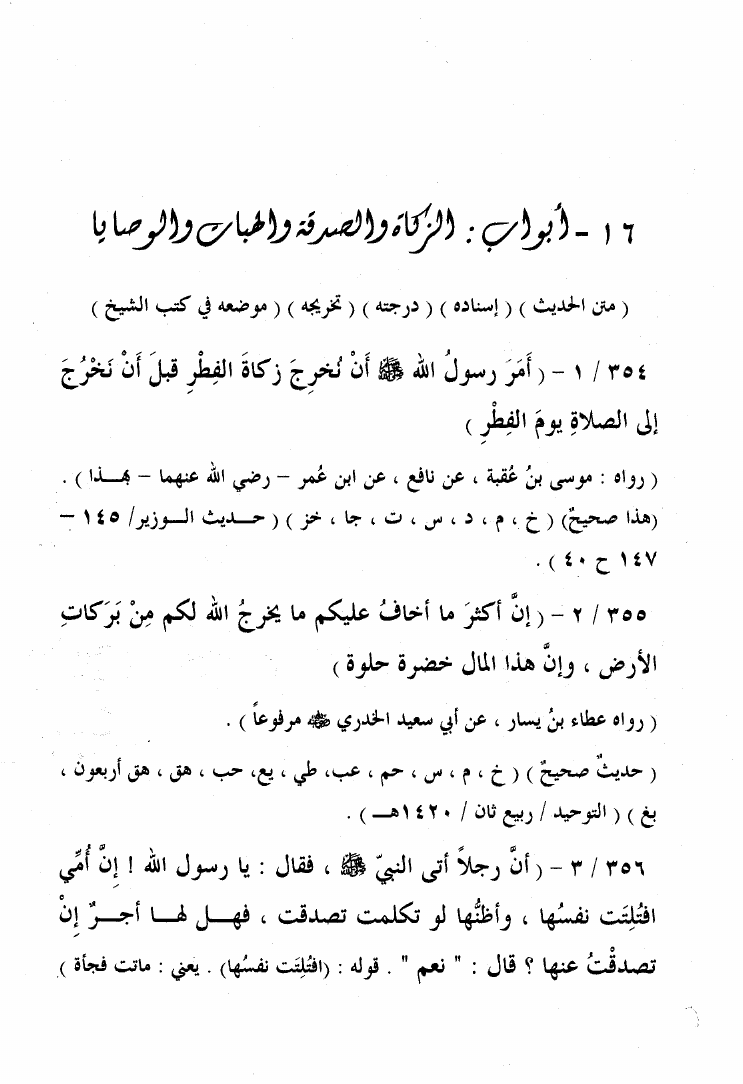 ١٦ - أبواب : الزكاة والصدقة والهبات والوصايا
( متن الحديث ) ( إسناده ) ( درجته ) ( تخريجه ) ( موضعه في كتب الشيخ )
٣٥٤ / ١ - ( أَمَرَ رسولُ الله ﷺ أَنْ نُخرِجَ زكاةَ الفِطْرِ قبلَ أَنْ نَخْرُجَ
إلى الصلاةِ يومَ الفِطْرِ )
( رواه : موسى بنُ عُقبة ، عن نافع ، عن ابن عُمر – رضي الله عنهما – بهـــذا ) .
(هذا صحيحٌ) ( خ ، م ، د ، س ، ت ، جا ، خز ) ( حـــديث الـــوزير/ ١٤٥ –
١٤٧ ح ٤٠ ) .
٣٥٥ / ٢ - ( إنَّ أكثرَ ما أخافُ عليكم ما يخرجُ الله لكم مِنْ بَرَكاتِ
الأرض ، وإنَّ هذا المال خضرة حلوة )
( رواه عطاء بنُ يسار ، عن أبي سعيد الخدري ﷺ مرفوعاً ) .
( حديثٌ صحيحٌ ) ( خ ، م ، س ، حم ، عب، طي ، يع، حب ، هق ، هق أربعون ،
بغ ) ( التوحيد / ربيع ثان / ١٤٢٠هـــ ) .
٣٥٦ / ٣ - ( أنَّ رجلاً أتى النبيّ ﷺ ، فقال : يا رسول الله ! إِنَّ أُمِّي
افتُلِتَت نفسُها ، وأظنُّها لو تكلمت تصدقت ، فهـــل لهـــا أجـــرٌ إنْ
تصدقْتُ عنها ؟ قال : " نعم " . قوله : (افتُلِتَت نفسُها) . يعني : ماتت فجأة )